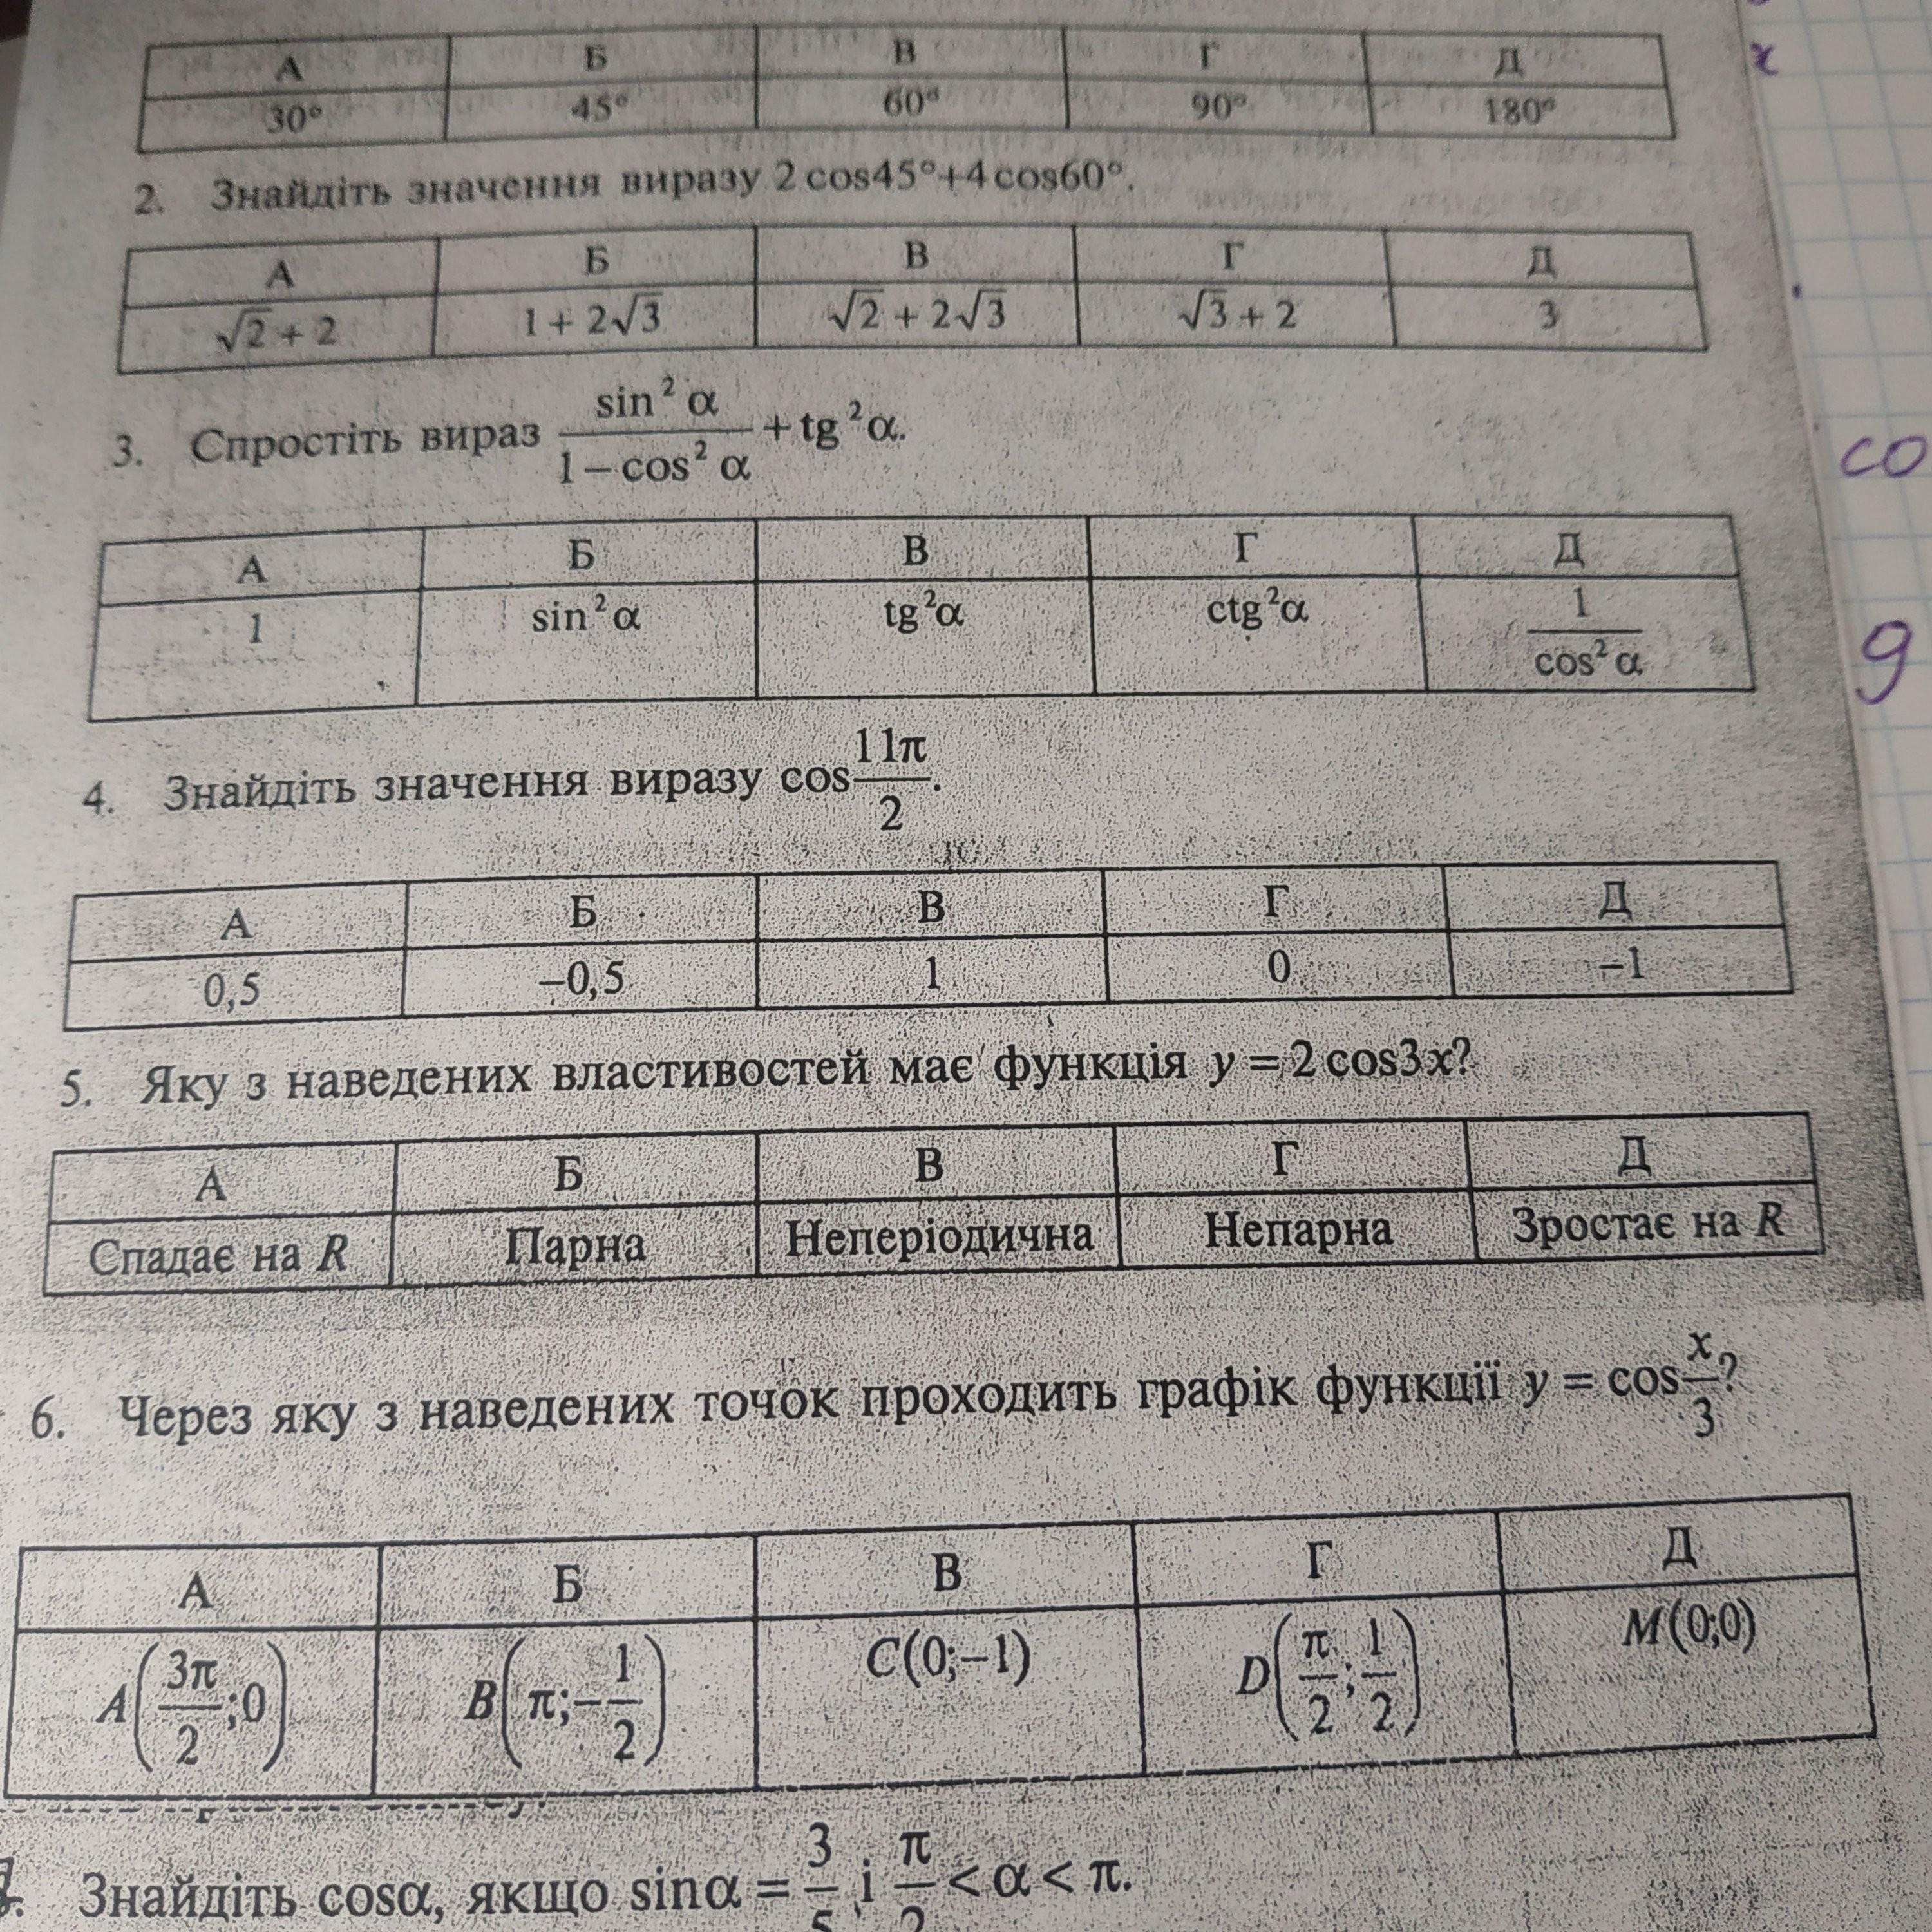 А Б В Г Д
30° 45° 60° 90° 180°
2. Знайдіть значення виразу 2 cos45°+4 cos60°.
А Б В Г Д
√2 + 2 1 + 2√3 √2 + 2√3 √3 + 2 3
3. Спростіть вираз sin² α / (1 – cos² α) + tg²α.
А Б В Г Д
1 sin²α tg²α ctg²α 1/cos² α
4. Знайдіть значення виразу cos 11π/2.
А Б В Г Д
0,5 –0,5 1 0 –1
5. Яку з наведених властивостей має функція y = 2 cos3x?
А Б В Г Д
Спадає на R Парна Неперіодична Непарна Зростає на R
6. Через яку з наведених точок проходить графік функції y = cos x/3?
А Б В Г Д
A(3π/2;0) B(π;–1/2) C(0;–1) D(π/2;1/2) M(0;0)
7. Знайдіть cosα, якщо sinα = 3/5 і π/2 < α < π.
x
co
9